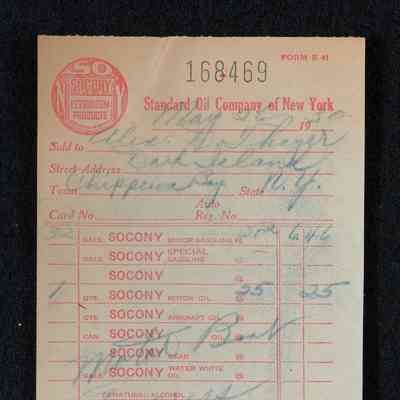 FORM E 41
SO
SOCONY
PETROLEUM
PRODUCTS
168469
Standard Oil Company of New York
May 19 30
Sold to Alex. Thayer
Street Address Dark Island
Town Chippewa Bay State N.Y.
Card No. Auto Reg. No.
32 GALS. SOCONY MOTOR GASOLINE @ 6 46
GALS. SOCONY SPECIAL GASOLINE @
SOCONY @
1 QTS. SOCONY MOTOR OIL 25 25
QTS. SOCONY AIRCRAFT OIL @
CAN SOCONY OIL @
SOCONY GEAR @
Motor Boat
GALS. SOCONY WATER WHITE OIL @
DENATURED ALCOHOL